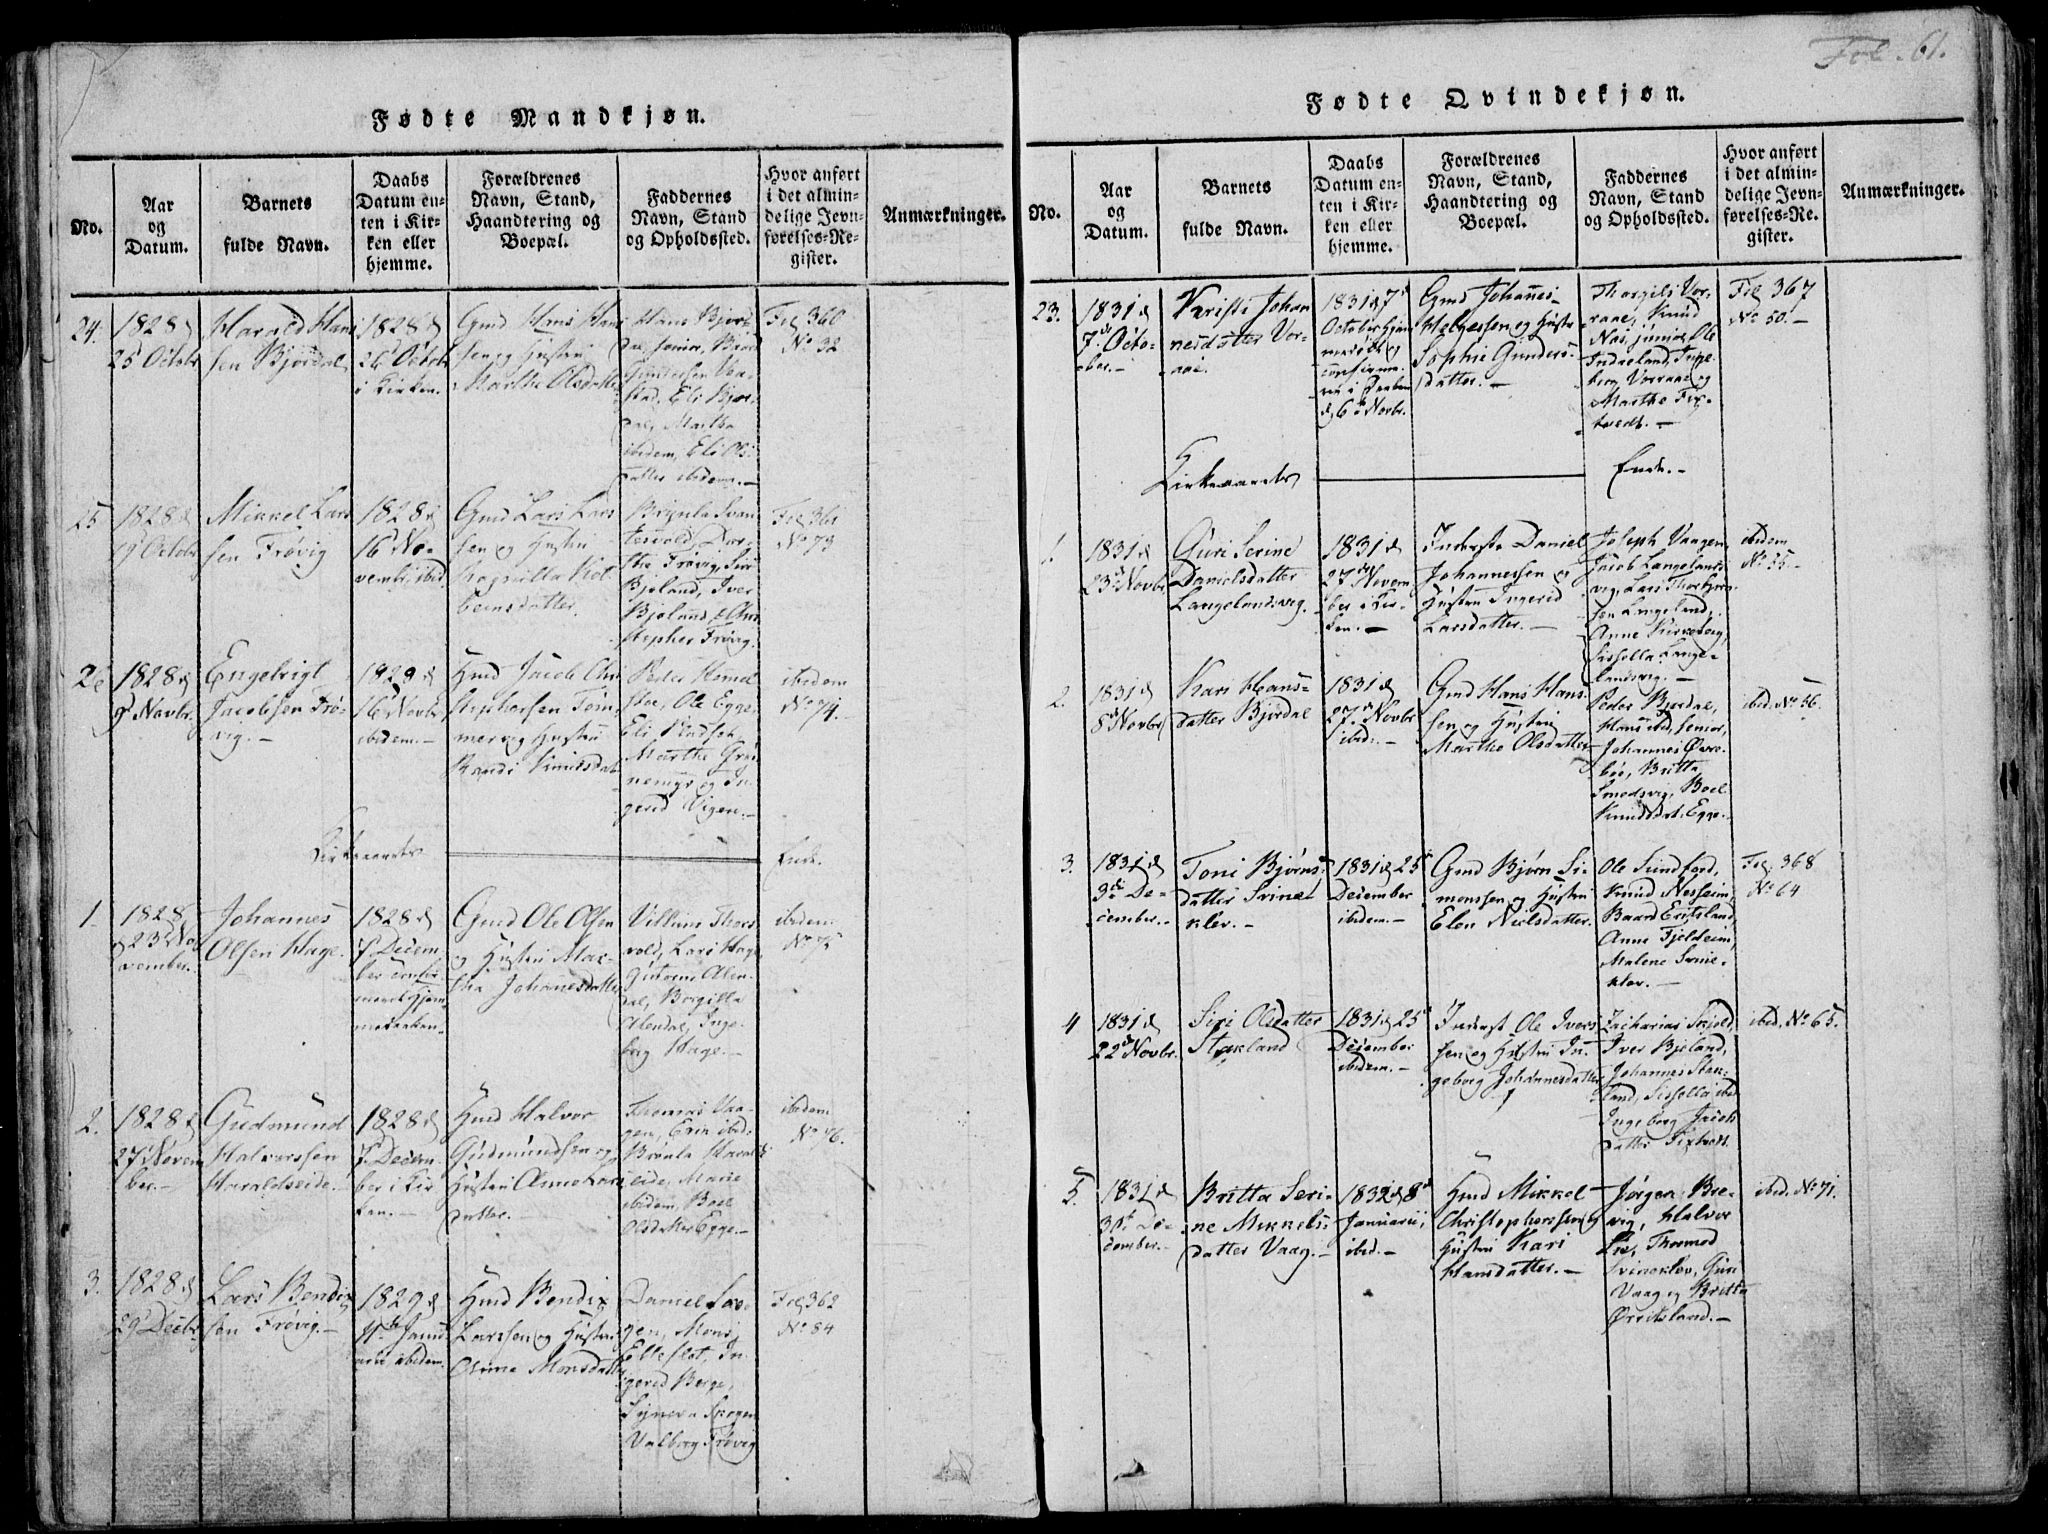 Fol. 61.
Fødte Mandkjøn.
No.
Aar
og
Datum.
Barnets
fulde Navn.
Daabs
Datum en-
ten i Kir-
ken eller
hjemme.
Forældrenes
Navn, Stand,
Haandtering og
Boepæl.
Faddernes
Navn, Stand
og Opholdssted.
Hvor anført
i det almin-
delige Jevn-
førelses-Re-
gister.
Anmærkninger.
24.
1828 d
25 Octobr
Harald Hans
sen Bjørdal
1828 d
26 Octobr
i Kirken.
Gmd Hans Hans
sen og Hustru
Marthe Olsdatter
Hans Bjør-
dal senior,
Gundersen
stad, Eli Bjør-
dal, Martha
ibidem, Eli Ols-
datter ibidem.
Fol 360
No 32
25
1828 d
19 Octobr
Mikkel Lars
sen Frøvig
1828 d
16 No-
vembr, ibid
Gmd Lars Lars
sen og Hustru
Kol-
beensdatter.
Frøvig, Siri
Bjeland, Iver
Bjeland, Chri-
stopher Frøvig.
Fol 361
No 73
26
1828 d
9 Novbr.
Engelbrigt
Jacobsen Frø-
vig.
1828 d
16 Novbr
ibidem.
Hmd Jacob Chri
stophersen Tøm-
mervig Hustru
Randi
Peder Hemel
stoe, Ole Egge,
Eli
Marthe Grøn-
nemyr og In-
gerid Vigen.
ibidem
No 74.
Kirkeaarets
Ende.
1.
1828
d 23 No-
vember.
Johannes
Olsen Hage.
1828 d
7 Decem-
ber confir-
meret hjem-
medaaben.
Gmd Ole Olsen
og Hustru Mar-
tha Johannesdatter
Villum Thors
vold, Lars Hage,
Guttorm Alen-
dal, Borgilla
Alendal, Inge-
borg Hage.
ibidem
No 75
2.
1828 d
27 Novem
ber.
Gudmund
Halvorssen
Haraldseide.
1828 d
7 Decem-
ber i Kir
ken.
Hmd Halvor
Gudmundsen og
Hustru Anne Lars
datter.
Thomas Vaa-
gen, Erin ibid:
Brønla Harald
eide, Marie
ibidem, Boel
Olsdatter Egge.
ibidem
No 76.
3.
1828 d
29 Decbr
Lars Bendix
sen Frøvig.
1829 d
11te Janu
arii ibidem.
Hmd Bendix
Larssen og Hustru
Olime Monsdatter
Daniel
gen, Mons
Ellefslot, In-
gerid Berge,
Synneva Skogen
Valborg Frøvig
Fol 362
No 84
Fødte Qvindekjøn.
No.
Aar
og
Datum.
Barnets
fulde Navn.
Daabs
Datum en-
ten i Kir-
ken eller
hjemme.
Forældrenes
Navn, Stand,
Haandtering og
Boepæl.
Faddernes
Navn, Stand
og Opholdssted.
Hvor anført
i det almin-
delige Jevn-
førelses-Re-
gister.
Anmærkninger.
23.
1831 d
7de Octo-
ber.
Kristi Johan
nesdatter Vor-
aae.
1831 d 7d
October hjem
medøbt og
confirme-
ret i Daaben
d 6 Novbr.
Gmd Johannes
Helgessen og Hustr
Sophie Gunders-
datter.
Thorgils Vor-
raae, Knud
Næs junior, Ole
Indreland, Inge-
borg Vorraae og
Marthe Fix-
tvedt.
Fol 367
No 50.
Kirkeaarets
Ende.
1.
1831 d
23 Novbr
Guri Serine
Danielsdatter
Langelandsvig.
1831 d
27 Novem
ber i Kir-
ken.
Inderste Daniel
Johannessen og
Hustru Ingerid
Larsdatter.
Joseph Vaagen,
Jacob Langelands
vig, Lars Thorbjørn
sen Langeland,
Anne Kirkeberg,
Sissella Lange-
landsvig.
ibidem
No 55.
2.
1831 d
8 Novbr
Kari Hans-
datter Bjørdal
1831 d
27 Novbr
ibid.
Gmd Hans Hans
sen og Hustru
Marthe Olsdatter
Peder Bjørdal,
Hans ibid, senior,
Johannes Øvre-
bøe, Britta
Smedsvig, Boel
Knudsdat. Egge.
ibid. No 56.
3.
1831 d
9de De-
cember.
Toni Bjørns-
datter Svine-
klev.
1831 d 25
December
ibidem.
Gmd Bjørn Si-
monssen og Hustru
Elen Neilsdatter.
Ole Sundfærd,
Knud Nesheim,
Baard Eritsland,
Anne Fjeldheim,
Malene Svine-
klev.
Fol. 368
No 64
4
1831 d
22d Novbr.
Siri Olsdatter
Stakland
1831 d 25
December
ibidem.
Inderst Ole Ivers
sen og Hustru In-
geborg Johannesdatter
Zacharias Skjold,
Iver Bjeland,
Johannes Stak-
land, Sissella ibid
Ingeborg Jacobs
datter Fixtvedt.
ibid. No 65.
5.
1831 d
30te De-
cember.
Britta Seri-
ne Mikkels-
datter Vaag.
1832 d 8d
Januarii,
ibid.
Hmd Mikkel
Christophersen og
Hustru Kari
Hansdatter.
Jørgen Bre-
vig, Halvor
Lie, Thormod
Svineklev, Guri
Vaag og Britta
Ørritsland.
ibid. No 71.